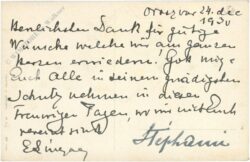 Oroszvar 24. dec
1930
Herzlichsten Dank für gütige
Wünsche welche wir aus ganzem
Herzen erwiedern. Gott möge
Euch Alle in seinen gnädigsten
Schutz nehmen in diesen
Traurigen Tagen, wo wir mit Euch
vereint sind
ELónyay Stephanie